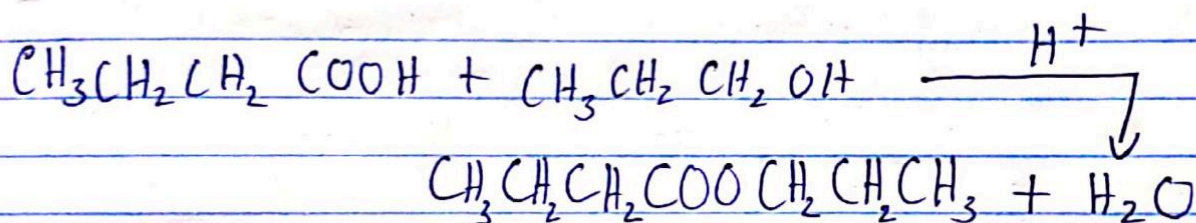 H⁺
CH₃CH₂CH₂ COOH + CH₃CH₂ CH₂ OH
CH₃CH₂CH₂COO CH₂CH₂CH₃ + H₂O